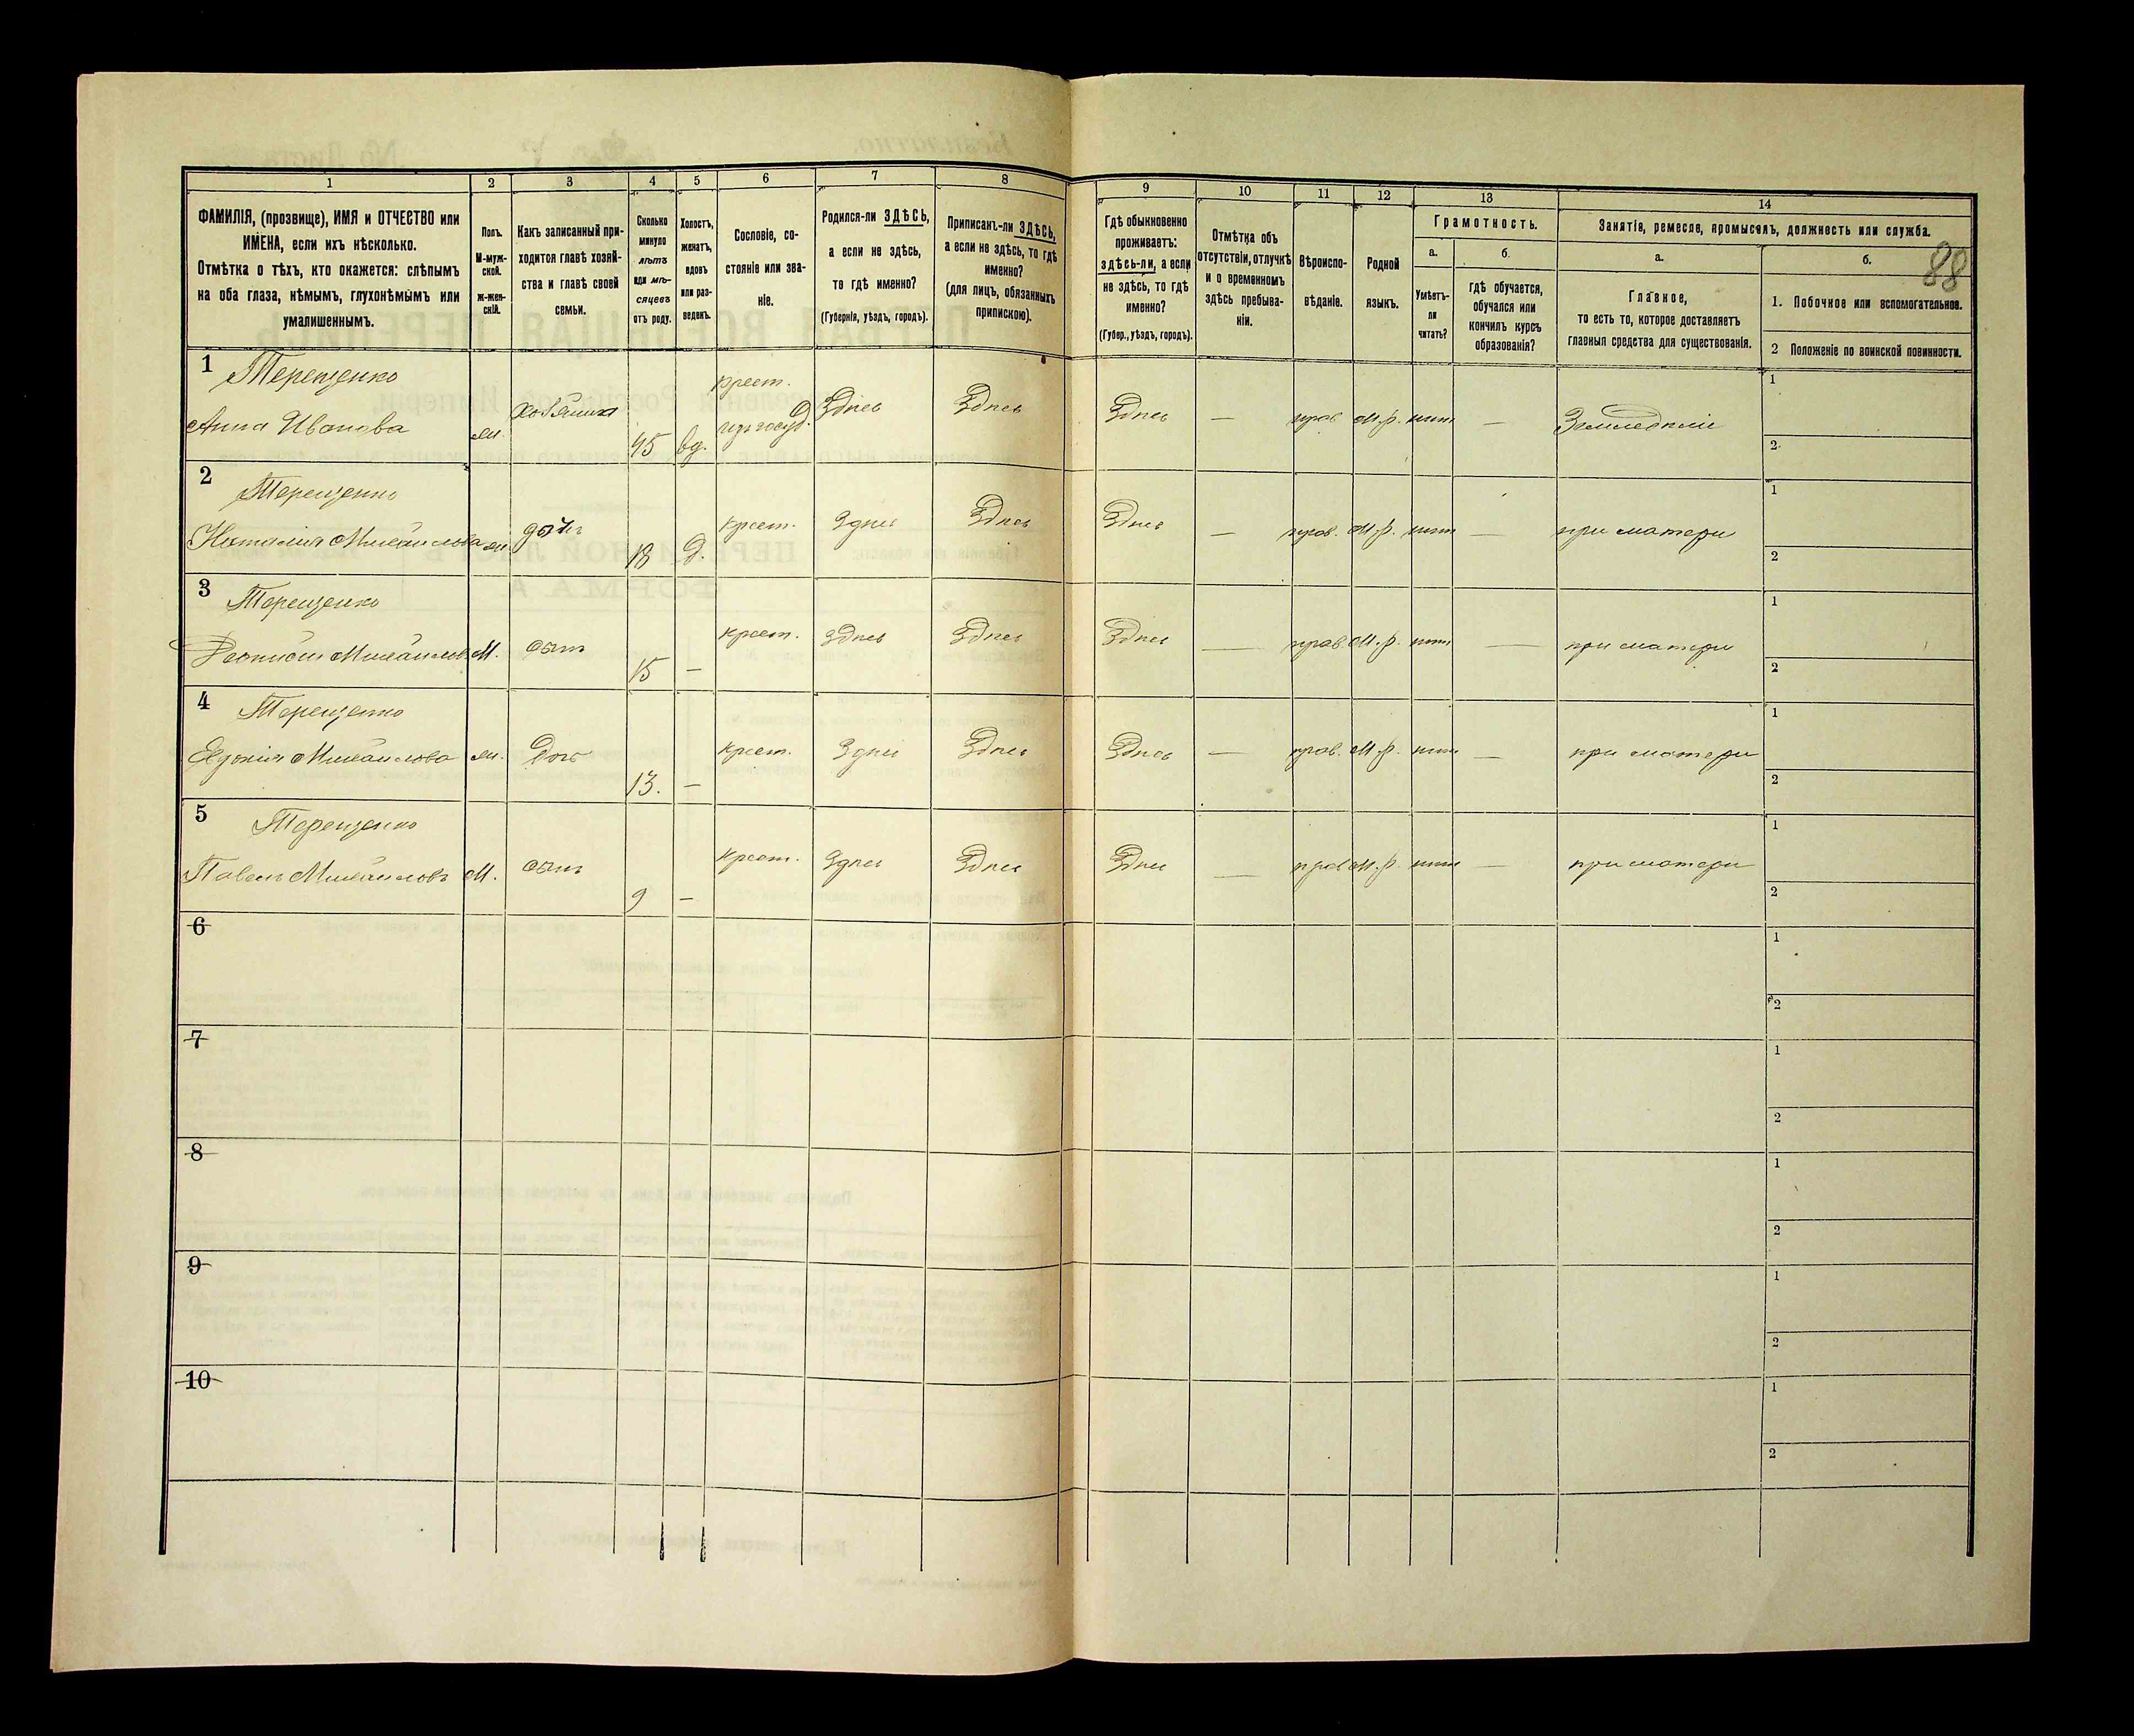 1 2 3 4 5 6 7 8 9 10 11 12 13 14
ФАМИЛІЯ, (прозвище), ИМЯ и ОТЧЕСТВО или
ИМЕНА, если ихъ нѣсколько.
Отмѣтка о тѣхъ, кто окажется: слѣпымъ
на оба глаза, нѣмымъ, глухонѣмымъ или
умалишеннымъ.
Полъ.
М-муж-
ской.
ж-жен-
скій.
Какъ записанный при-
ходится главѣ хозяй-
ства и главѣ своей
семьи.
Сколько
минуло
лѣтъ
или мѣ-
сяцевъ
отъ роду.
Холостъ,
женатъ,
вдовъ
или раз-
веденъ.
Сословіе, со-
стояніе или зва-
ніе.
Родился-ли ЗДѢСЬ,
а если не здѣсь,
то гдѣ именно?
(Губернія, уѣздъ, городъ).
Приписанъ-ли ЗДѢСЬ,
а если не здѣсь, то гдѣ
именно?
(для лицъ, обязанныхъ
припискою).
Гдѣ обыкновенно
проживаетъ:
здѣсь-ли, а если
не здѣсь, то гдѣ
именно?
(Губер., уѣздъ, городъ).
Отмѣтка объ
отсутствіи, отлучкѣ
и о временномъ
здѣсь пребыва-
ніи.
Вѣроиспо-
вѣданіе.
Родной
языкъ.
Грамотность.
а.
Умѣетъ-
ли
читать?
б.
гдѣ обучается,
обучался или
кончилъ курсъ
образованія?
Занятія, ремесле, промыселъ, должность или служба.
а.
Главное,
то есть то, которое доставляетъ
главныя средства для существованія.
б.
88
1. Побочное или вспомогательное.
2 Положеніе по воинской повинности.
1 Терещенко
Анна Иванова ж. Хозяйка 45 вд. крест.
изъ госуд. Здѣсь Здѣсь Здѣсь — прав. М.р. нѣтъ — Земледѣліе 1
2
2 Терещенко
Наталія Михайлова ж. дочь 18 д. крест. Здѣсь Здѣсь Здѣсь — прав. М.р. нѣтъ — при матери 1
2
3 Терещенко
Діонисій Михайловъ М. сынъ 15 — крест. здѣсь Здѣсь Здѣсь — прав. М.р. нѣтъ — при матери 1
2
4 Терещенко
Михайлова ж. Дочь 13. — крест. Здѣсь Здѣсь Здѣсь — прав. М.р. нѣтъ — при матери 1
2
5 Терещенко
Павелъ Михайловъ М. сынъ 9 — крест. Здѣсь Здѣсь Здѣсь — прав М.р. нѣтъ — при матери 1
2
6 1
2
7 1
2
8 1
2
9 1
2
10 1
2